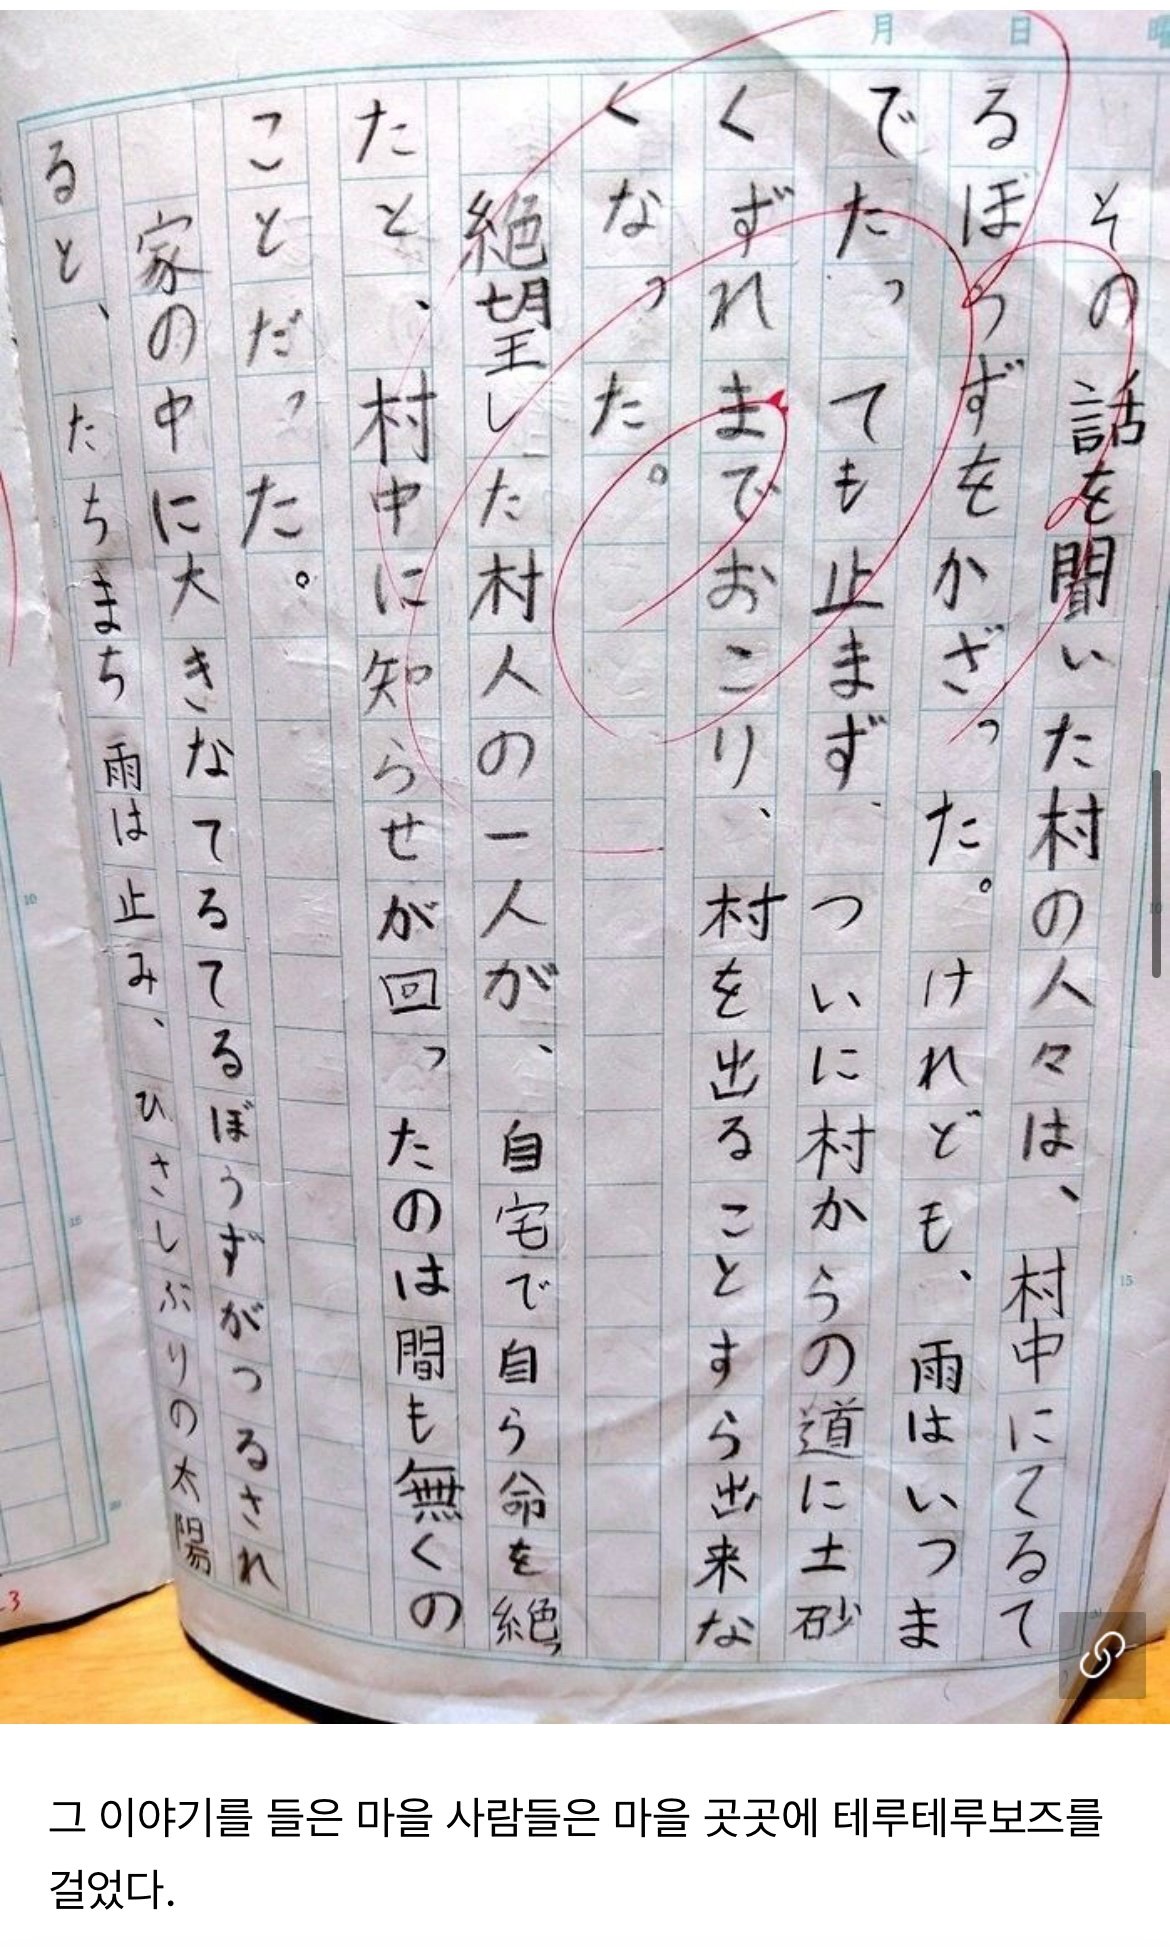 月 日 曜
その話を聞いた村の人々は、村中にてるて
るぼうずをかざった。けれども、雨はいつま
でたっても止まず、ついに村からの道に土砂
くずれまでおこり、村を出ることすら出来な
くなった。
絶望した村人の一人が、自宅で自ら命を絶っ
たと、村中に知らせが回ったのは間も無くの
ことだった。
家の中に大きなてるてるぼうずがつるされ
ると、たちまち雨は止み、ひさしぶりの太陽
10
15
15
20
그 이야기를 들은 마을 사람들은 마을 곳곳에 테루테루보즈를
걸었다.